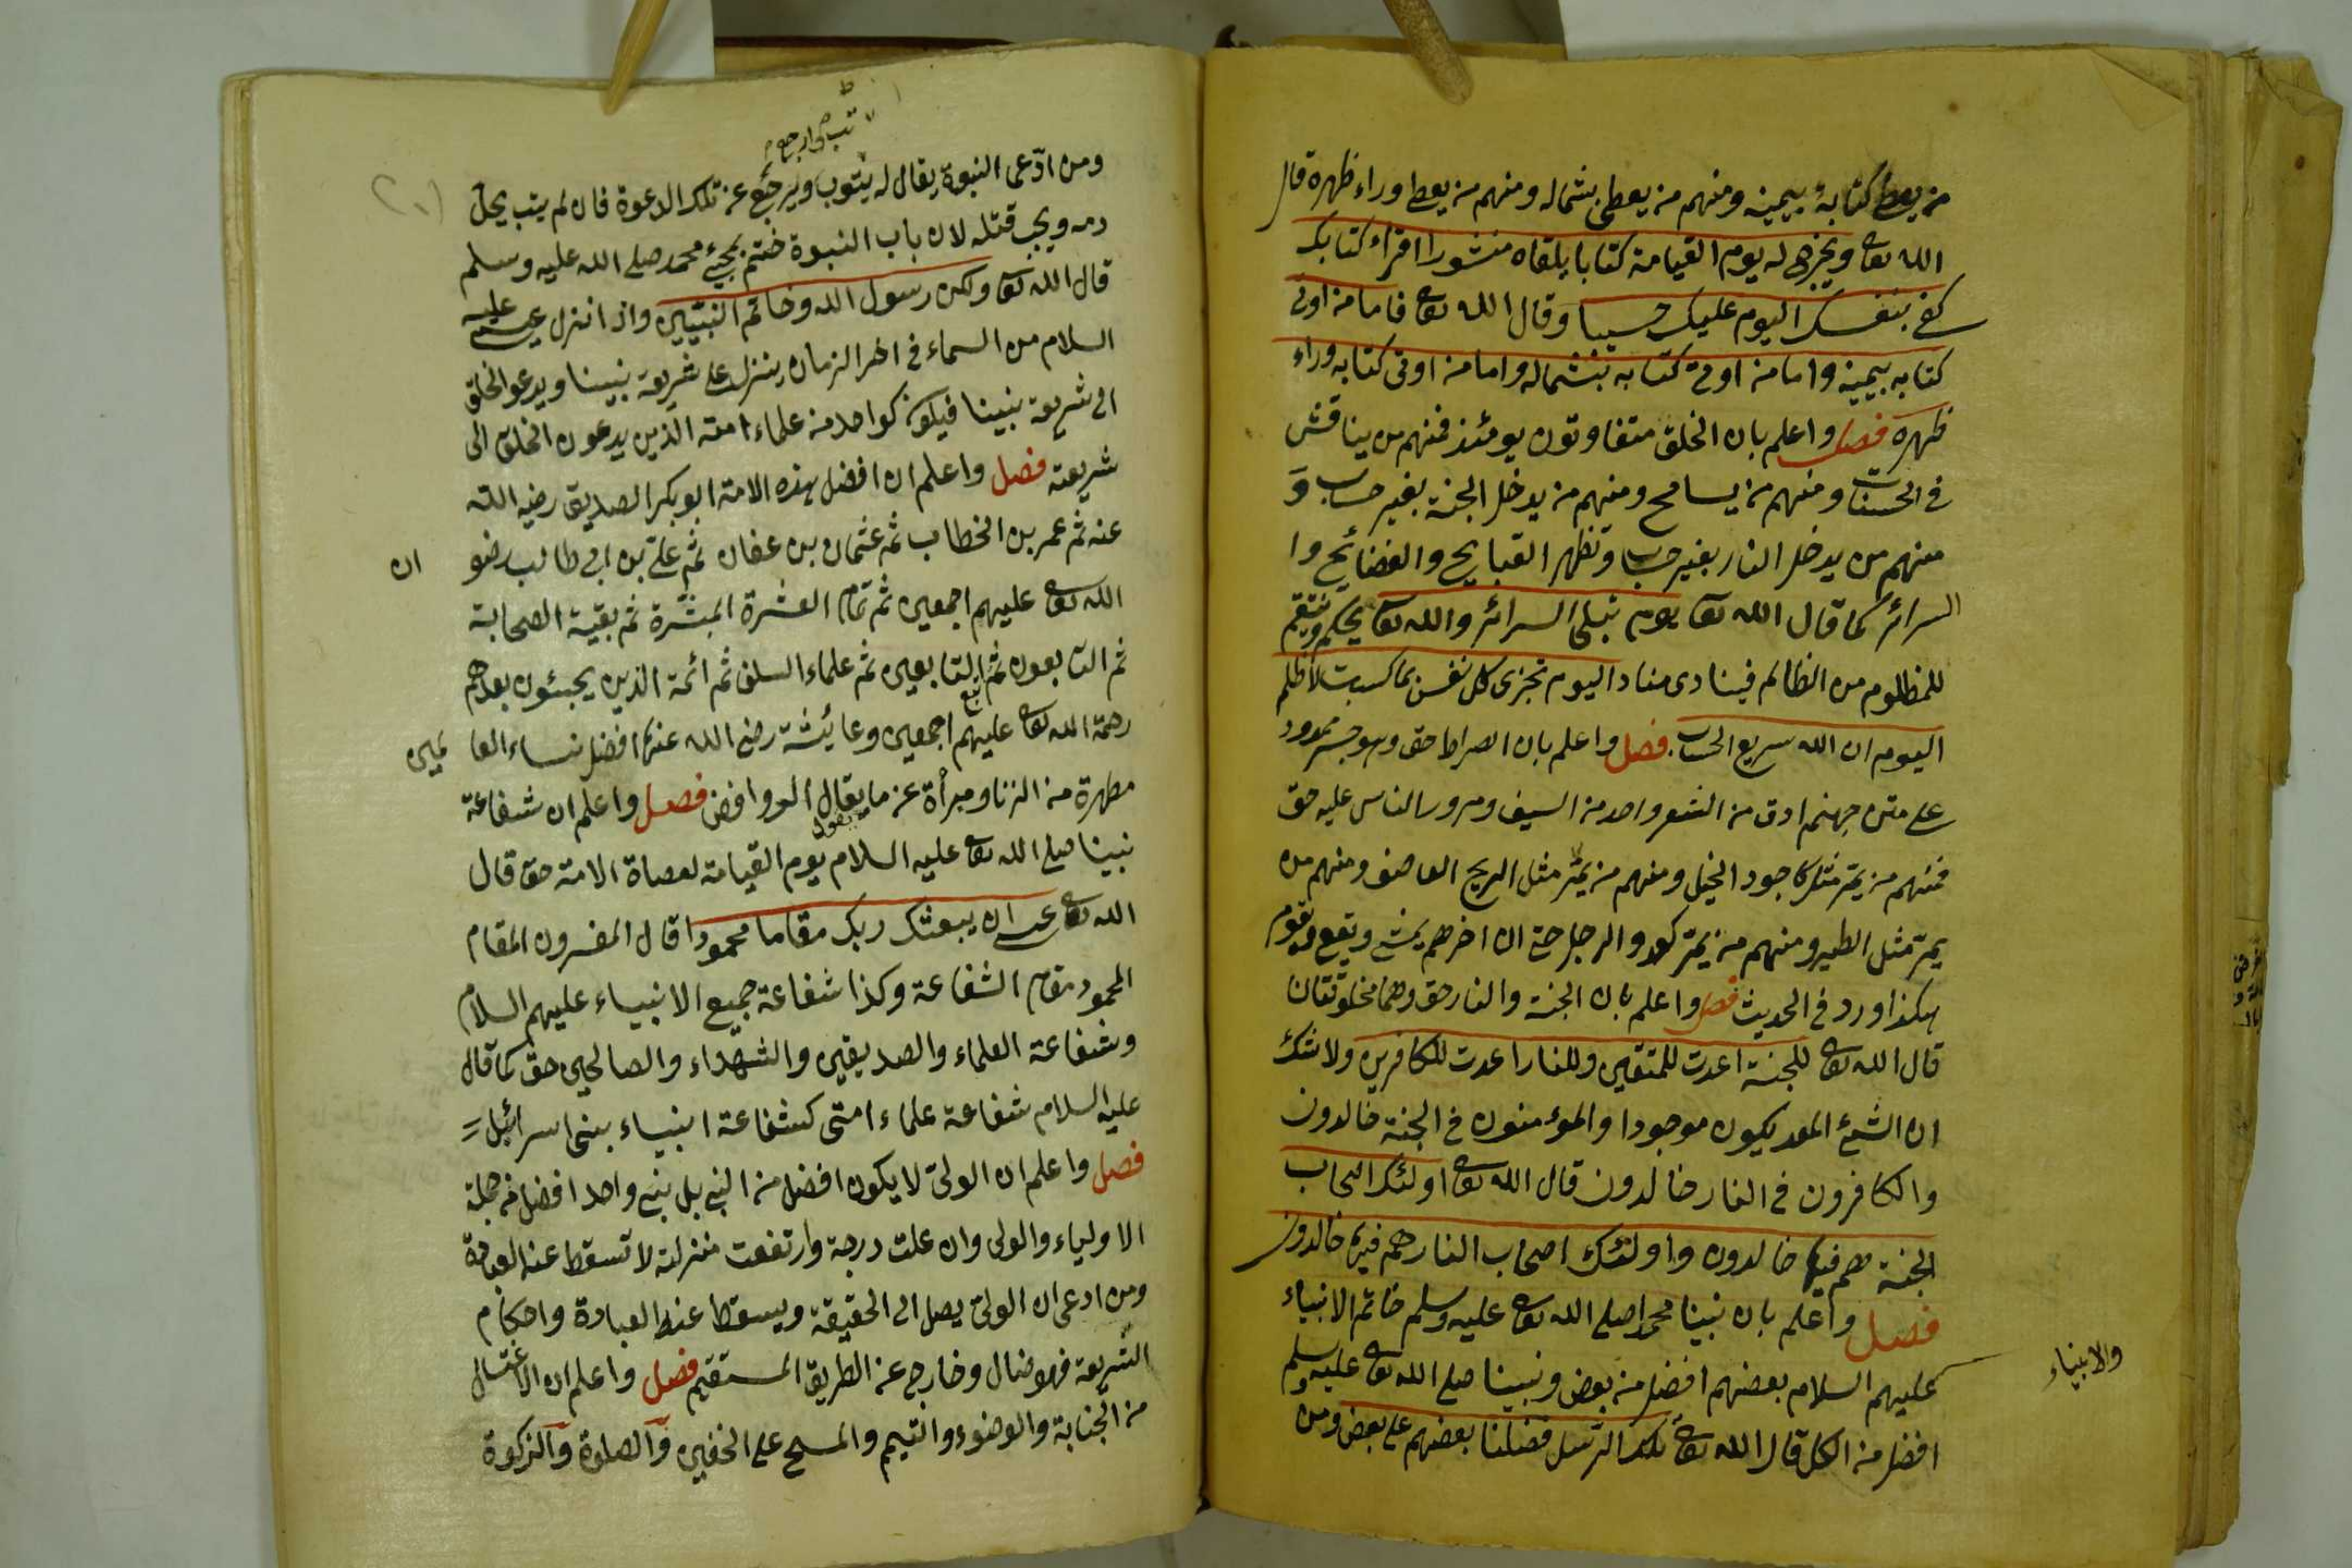 من يعطى كتابه بيمينه ومنهم من يعطى بشماله ومنهم من يعطى وراء ظهره قال
الله تعا ويخرج له يوم القيامة كتابا يلقاه منشورا اقراء كتابك
كفى بنفسك اليوم عليك حسيبا وقال الله تعا فاما من اوتى
كتابه بيمينه واما من اوتى كتابه بشماله واما من اوتى كتابه وراء
ظهره فصل واعلم بان الخلق متفاوتون يومئذ فمنهم من يناقش
فى الحسنات ومنهم من يسامح ومنهم من يدخل الجنة بغير حساب و
منهم من يدخل النار بغير حساب وتظهر القبايح والفضائح وا
السرائر كما قال الله تعا يوم تبلى السرائر والله تعا يحكم وينتقم
للمظلوم من الظالم فينادى مناد اليوم تجزى كل نفس بما كسبت لا ظلم
اليوم ان الله سريع الحساب فصل واعلم بان الصراط حق وهو جسر ممدود
على متن جهنم ادق من الشعر واحد من السيف ومرور الناس عليه حق
فمنهم من يمر مثل كاجود الخيل ومنهم من يمر مثل الريح العاصف ومنهم من
يمر مثل الطير ومنهم من يمر كعدو الرجل حتى ان اخرهم يمشى ويقع ويقوم
هكذا ورد فى الحديث فصل واعلم بان الجنة والنار حق وهما مخلوقتان
قال الله تعا للجنة اعدت للمتقين وللنار اعدت للكافرين ولا شك
ان الشئ المعد يكون موجودا والمؤمنون فى الجنة خالدون
والكافرون فى النار خالدون قال الله تعا اولئك اصحاب
الجنة هم فيها خالدون واولئك اصحاب النار هم فيها خالدون
فصل واعلم بان نبينا محمدا صلى الله تعا عليه وسلم خاتم الانبياء
والانبياء
عليهم السلام بعضهم افضل من بعض ونبينا صلى الله تعا عليه وسلم
افضل من الكل قال الله تعا تلك الرسل فضلنا بعضهم على بعض ومن
ومن ادّعى النبوة يقال له يتوب ويرجع عن تلك الدعوة فان لم يتب يحل
دمه ويجب قتله لان باب النبوة ختم بمجئ محمد صلى الله عليه وسلم
قال الله تعا ولكن رسول الله وخاتم النبيين واذا نزل عيسى عليه
السلام من السماء فى اخر الزمان ينزل على شريعة نبينا ويدعو الخلق
الى شريعة نبينا فيكون كواحد من علماء امته الذين يدعون الخلق الى
شريعته فصل واعلم ان افضل هذه الامة ابو بكر الصديق رضى الله
عنه ثم عمر بن الخطاب ثم عثمان بن عفان ثم على بن ابى طالب رضو ان
الله تعا عليهم اجمعين ثم تمام العشرة المبشرة ثم بقية الصحابة
ثم التابعون ثم تبع التابعين ثم علماء السلف ثم ائمة الذين يجيئون بعدهم
رحمة الله تعا عليهم اجمعين وعائيشة رضى الله عنها افضل نساء العا لمين
مطهرة من الزنا ومبرأة عن ما يقال الروافض فصل واعلم ان شفاعة
نبينا صلى الله تعا عليه السلام يوم القيامة لعصاة الامة حق قال
الله تعا عسى ان يبعثك ربك مقاما محمودا قال المفسرون المقام
المحمود مقام الشفاعة وكذا شفاعة جميع الانبياء عليهم السلام
وشفاعة العلماء والصديقين والشهداء والصالحين حق كما قال
عليه السلام شفاعة علماء امتى كشفاعة انبياء بنى اسرائيل
فصل واعلم ان الولى لا يكون افضل من النبى بل نبى واحد افضل من جملة
الاولياء والولى وان علت درجة وارتفعت منزلته لا تسقط عنه العبادة
ومن ادعى ان الولى يصل الى الحقيقة ويسقط عنه العبادة واحكام
الشريعة فهو ضال وخارج عن الطريق المستقيم فصل واعلم ان الاغتسال
من الجنابة والوضوء والتيمم والمسح على الخفين والصلوة والزكوة